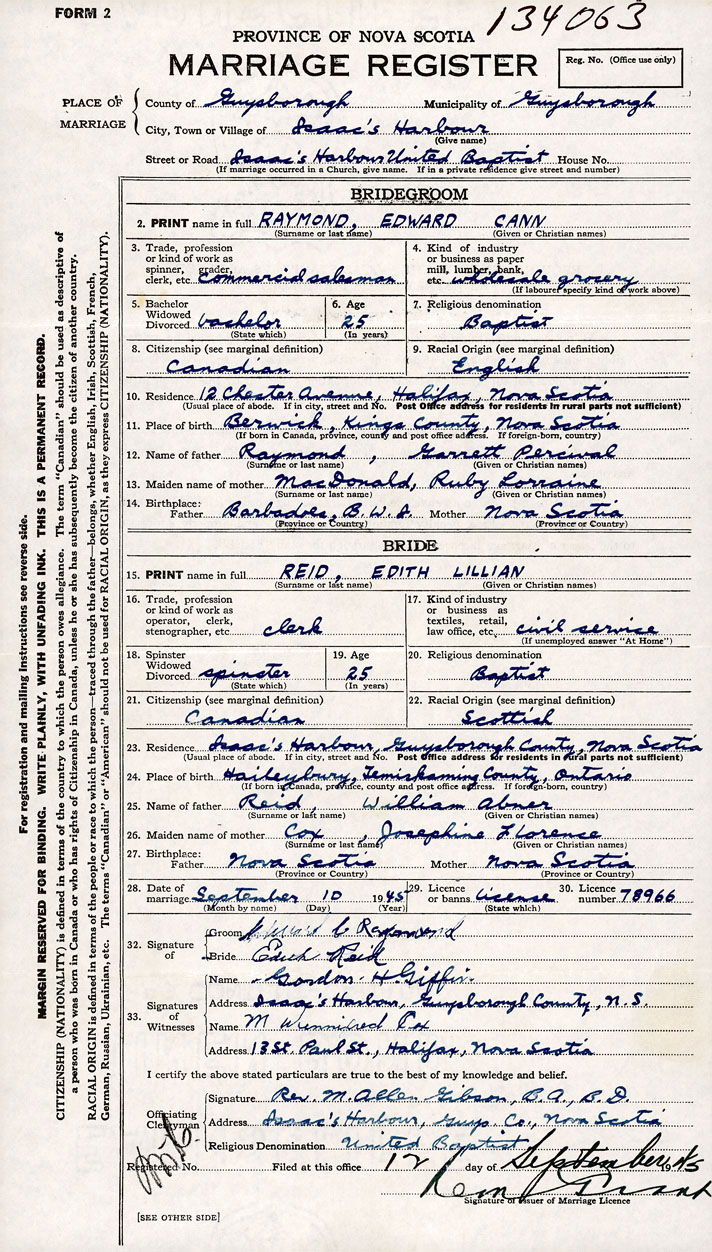 FORM 2
134063
PROVINCE OF NOVA SCOTIA
MARRIAGE REGISTER
Reg. No. (Office use only)
PLACE OF MARRIAGE
County of Guysborough Municipality of Guysborough
City, Town or Village of Isaac's Harbour
(Give name)
Street or Road Isaac's Harbour United Baptist House No.
(If marriage occurred in a Church, give name. If in a private residence give street and number)
BRIDEGROOM
2. PRINT name in full RAYMOND, EDWARD CANN
(Surname or last name) (Given or Christian names)
3. Trade, profession or kind of work as spinner, grader, clerk, etc. commercial salesman
4. Kind of industry or business as paper mill, lumber, bank, etc. wholesale grocery
(If labourer specify kind of work above)
5. Bachelor Widowed Divorced bachelor
(State which)
6. Age 25
(In years)
7. Religious denomination
Baptist
8. Citizenship (see marginal definition)
Canadian
9. Racial Origin (see marginal definition)
English
10. Residence 12 Chester Avenue, Halifax, Nova Scotia
(Usual place of abode. If in city, street and No. Post Office address for residents in rural parts not sufficient)
11. Place of birth Berwick, Kings County, Nova Scotia
(If born in Canada, province, county and post office address. If foreign-born, country)
12. Name of father Raymond, Garrett Percival
(Surname or last name) (Given or Christian names)
13. Maiden name of mother MacDonald, Ruby Lorraine
(Surname or last name) (Given or Christian names)
14. Birthplace: Father Barbados, B.W.I. Mother Nova Scotia
(Province or Country) (Province or Country)
BRIDE
15. PRINT name in full REID, EDITH LILLIAN
(Surname or last name) (Given or Christian names)
16. Trade, profession or kind of work as operator, clerk, stenographer, etc clerk
17. Kind of industry or business as textiles, retail, law office, etc. civil service
(If unemployed answer "At Home")
18. Spinster Widowed Divorced spinster
(State which)
19. Age 25
(In years)
20. Religious denomination
Baptist
21. Citizenship (see marginal definition)
Canadian
22. Racial Origin (see marginal definition)
Scottish
23. Residence Isaac's Harbour, Guysborough County, Nova Scotia
(Usual place of abode. If in city, street and No. Post Office address for residents in rural parts not sufficient)
24. Place of birth Haileybury, Temiskaming County, Ontario
(If born in Canada, province, county and post office address. If foreign-born, country)
25. Name of father Reid, William Abner
(Surname or last name) (Given or Christian names)
26. Maiden name of mother Cox, Josephine Florence
(Surname or last name) (Given or Christian names)
27. Birthplace: Father Nova Scotia Mother Nova Scotia
(Province or Country) (Province or Country)
28. Date of marriage September 10 1945 29. Licence or banns license 30. Licence number 78966
(Month by name) (Day) (Year) (State which)
32. Signature of
Groom Edward C Raymond
Bride Edith Reid
33. Signatures of Witnesses
Name Gordon H. Giffin
Address Isaac's Harbour, Guysborough County, N.S.
Name M Winnifred Cox
Address 13 St. Paul St., Halifax, Nova Scotia
I certify the above stated particulars are true to the best of my knowledge and belief.
Officiating Clergyman
Signature Rev. M. Allen Gibson, B.A., B.D.
Address Isaac's Harbour, Guys. Co., Nova Scotia
Religious Denomination United Baptist
Registered No. Filed at this office 12 day of September 1945
Signature of Issuer of Marriage Licence
[SEE OTHER SIDE]
For registration and mailing instructions see reverse side.
MARGIN RESERVED FOR BINDING. WRITE PLAINLY, WITH UNFADING INK. THIS IS A PERMANENT RECORD.
CITIZENSHIP (NATIONALITY) is defined in terms of the country to which the person owes allegiance. The term "Canadian" should be used as descriptive of
a person who was born in Canada or who has rights of Citizenship in Canada, unless he or she has subsequently become the citizen of another country.
RACIAL ORIGIN is defined in terms of the people or race to which the person—traced through the father—belongs, whether English, Irish, Scottish, French,
German, Russian, Ukrainian, etc. The terms "Canadian" or "American" should not be used for RACIAL ORIGIN, as they express CITIZENSHIP (NATIONALITY).